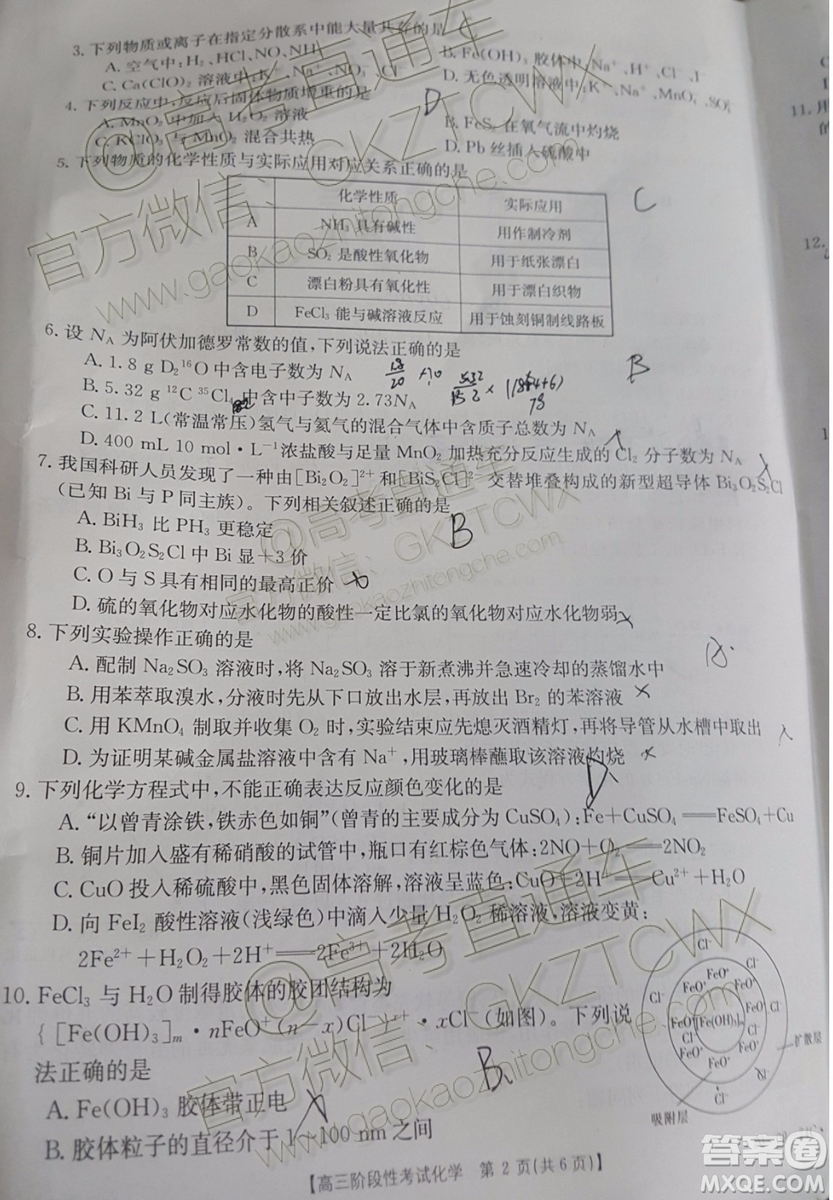 3. 下列物质或离子在指定分散系中能大量共存的是
A. 空气中:H₂、HCl、NO、NH₃ B. Fe(OH)₃ 胶体中:Na⁺、H⁺、Cl⁻、I⁻
C. Ca(ClO)₂ 溶液中:K⁺、Na⁺、NO₃⁻、Cl⁻ D. 无色透明溶液中:K⁺、Na⁺、MnO₄⁻、SO₄²⁻
4. 下列反应中,反应后固体物质增重的是 D
A. MnO₂ 中加入 H₂O₂ 溶液 B. FeS₂ 在氧气流中灼烧
C. KClO₃ 与 MnO₂ 混合共热 D. Pb 丝插入硫酸中
5. 下列物质的化学性质与实际应用对应关系正确的是
C
化学性质 实际应用
A NH₃ 具有碱性 用作制冷剂
B SO₂ 是酸性氧化物 用于纸张漂白
C 漂白粉具有氧化性 用于漂白织物
D FeCl₃ 能与碱溶液反应 用于蚀刻铜制线路板
6. 设 N_A 为阿伏加德罗常数的值,下列说法正确的是
B
A. 1.8 g D₂¹⁶O 中含电子数为 N_A
B. 5.32 g ¹²C ³⁵Cl₄ 中含中子数为 2.73N_A
C. 11.2 L(常温常压)氢气与氦气的混合气体中含质子总数为 N_A
D. 400 mL 10 mol·L⁻¹浓盐酸与足量 MnO₂ 加热充分反应生成的 Cl₂ 分子数为 N_A
7. 我国科研人员发现了一种由[Bi₂O₂]²⁺和[BiS₂Cl]²⁻ 交替堆叠构成的新型超导体 Bi₃O₂S₂Cl
(已知 Bi 与 P 同主族)。下列相关叙述正确的是
B
A. BiH₃ 比 PH₃ 更稳定
B. Bi₃O₂S₂Cl 中 Bi 显+3价
C. O 与 S 具有相同的最高正价
D. 硫的氧化物对应水化物的酸性一定比氯的氧化物对应水化物弱
8. 下列实验操作正确的是
A. 配制 Na₂SO₃ 溶液时,将 Na₂SO₃ 溶于新煮沸并急速冷却的蒸馏水中
B. 用苯萃取溴水,分液时先从下口放出水层,再放出 Br₂ 的苯溶液
C. 用 KMnO₄ 制取并收集 O₂ 时,实验结束应先熄灭酒精灯,再将导管从水槽中取出
D. 为证明某碱金属盐溶液中含有 Na⁺,用玻璃棒蘸取该溶液灼烧
9. 下列化学方程式中,不能正确表达反应颜色变化的是
D
A.“以曾青涂铁,铁赤色如铜”(曾青的主要成分为 CuSO₄):Fe+CuSO₄══FeSO₄+Cu
B. 铜片加入盛有稀硝酸的试管中,瓶口有红棕色气体:2NO+O₂══2NO₂
C. CuO 投入稀硫酸中,黑色固体溶解,溶液呈蓝色:CuO+2H⁺══Cu²⁺+H₂O
D. 向 FeI₂ 酸性溶液(浅绿色)中滴入少量 H₂O₂ 稀溶液,溶液变黄:
2Fe²⁺+H₂O₂+2H⁺══2Fe³⁺+2H₂O
10. FeCl₃ 与 H₂O 制得胶体的胶团结构为
{[Fe(OH)₃]ₘ·nFeO⁺(n-x)Cl⁻}ˣ⁺·xCl⁻(如图)。下列说
法正确的是
B
A. Fe(OH)₃ 胶体带正电
B. 胶体粒子的直径介于 1~100 nm 之间
[Fe(OH)₃]ₘ
FeO⁺
Cl⁻
扩散层
吸附层
【高三阶段性考试化学 第 2 页(共 6 页)】
11. 用
12.
@高考直通车
官方微信:GKZTCWX
www.gaokaozhitongche.com
@高考直通车
官方微信:GKZTCWX
www.gaokaozhitongche.com
@高考直通车
官方微信:GKZTCWX
www.gaokaozhitongche.com
答案圈
MXQE.COM